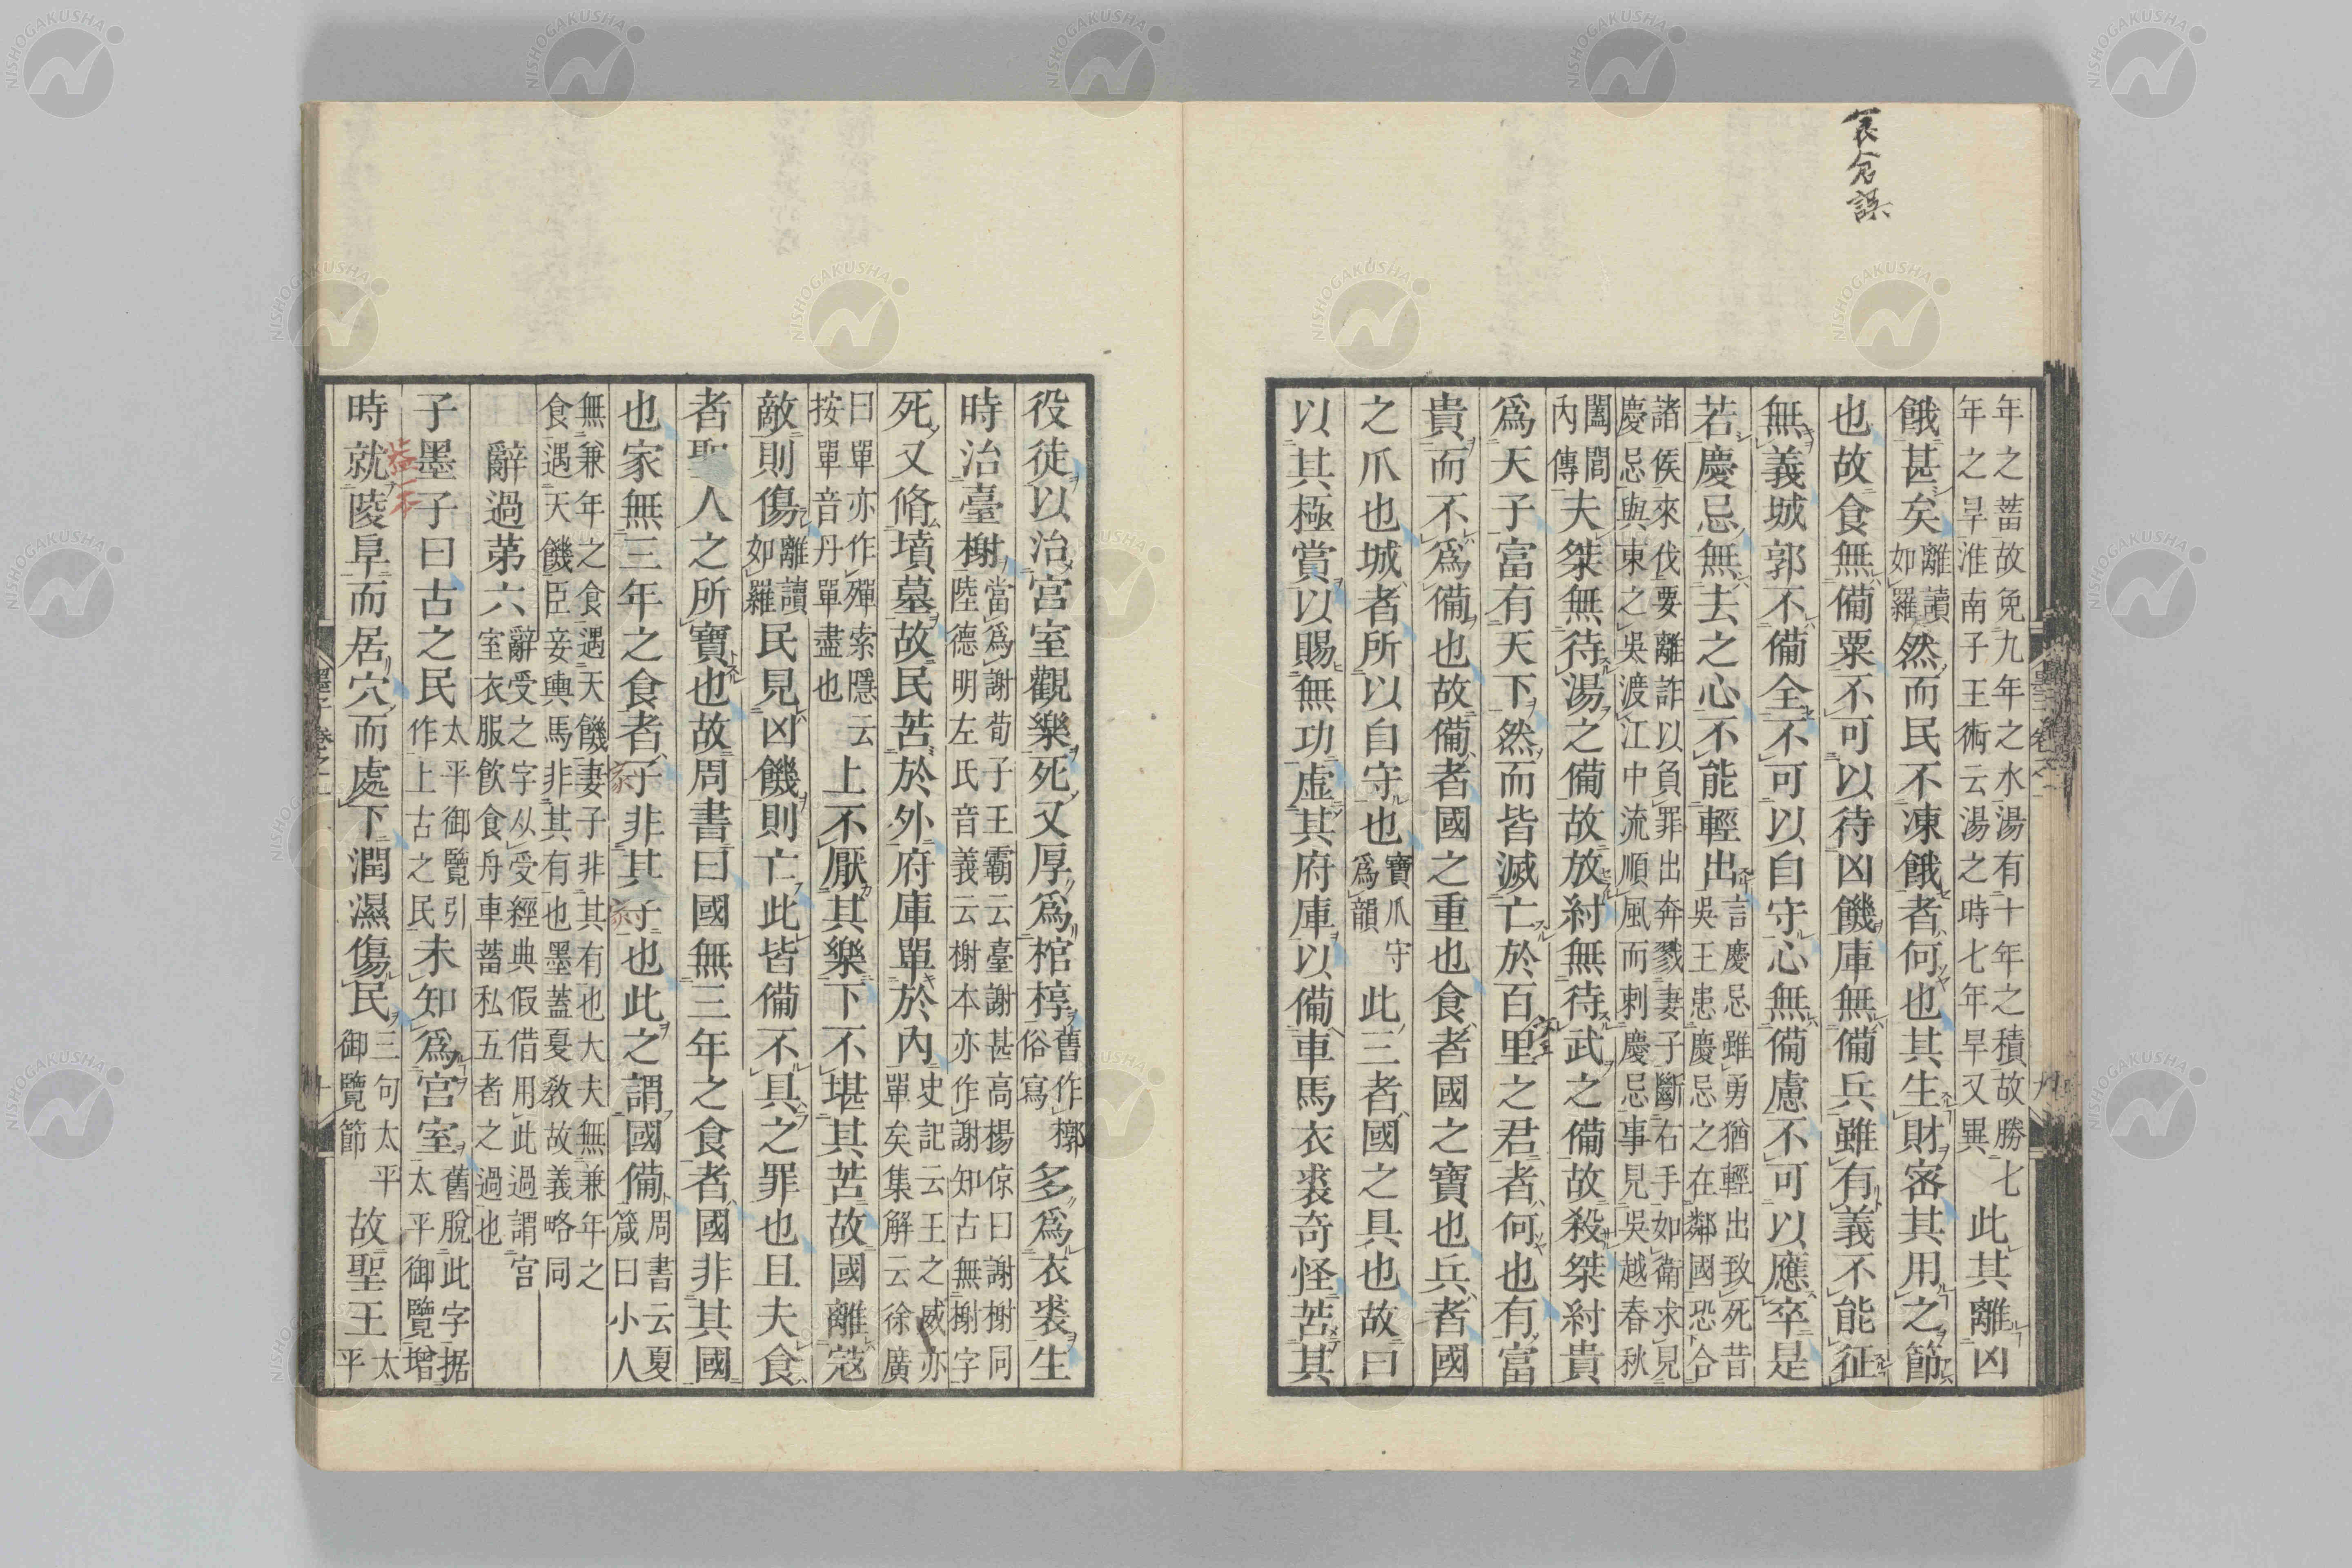 食倉誤
年之蓄故免九年之水湯有十年之積故勝七
年之旱淮南子王術云湯之時七年旱又異
此其離凶
餓甚矣離讀如羅然而民不凍餓者何也其生財密其用之節
也故食無備粟不可以待凶饑庫無備兵雖有義不能征
無義城郭不備全不可以自守心無備慮不可以應卒是
若慶忌無去之心不能輕出言慶忌雖勇猶輕出致死昔
吳王患慶忌之在鄰國恐合
諸侯來伐要離詐以負罪出奔戮妻子斷右手如衛求見
慶忌與東之吳渡江中流順風而刺慶忌事見吳越春秋
闔閭內傳夫桀無待湯之備故放紂無待武之備故殺桀紂貴
爲天子富有天下然而皆滅亡於百里之君者何也有富
貴而不爲備也故備者國之重也食者國之寶也兵者國
之爪也城者所以自守也寶爪守爲韻此三者國之具也故曰
以其極賞以賜無功虛其府庫以備車馬衣裘奇怪苦其
役徒以治宮室觀樂死又厚爲棺椁舊作槨俗寫多爲衣裘生
時治臺榭當爲謝荀子王霸云臺謝甚高楊倞曰謝榭同
陸德明左氏音義云榭本亦作謝知古無榭字
死又脩墳墓故民苦於外府庫單於內史記云王之威亦
單矣集解云徐廣
曰單亦作殫索隱云
按單音丹單盡也
上不厭其樂下不堪其苦故國離寇
敵則傷離讀如羅民見凶饑則亡此皆備不具之罪也且夫食
者聖人之所寶也故周書曰國無三年之食者國非其國
也家無三年之食者子非其子也此之謂國備周書云夏
箴曰小人
無兼年之食遇天饑妻子非其有也大夫無兼年之
食遇天饑臣妾輿馬非其有也墨蓋夏教故義略同
辭過第六辭受之字从受經典假借用此過謂宮
室衣服飲食舟車蓄私五者之過也
子墨子曰古之民太平御覽引
作上古之民
未知爲宮室舊脫此字据
太平御覽增
時就陵阜而居穴而處下潤濕傷民三句太平
御覽節
故聖王太
平